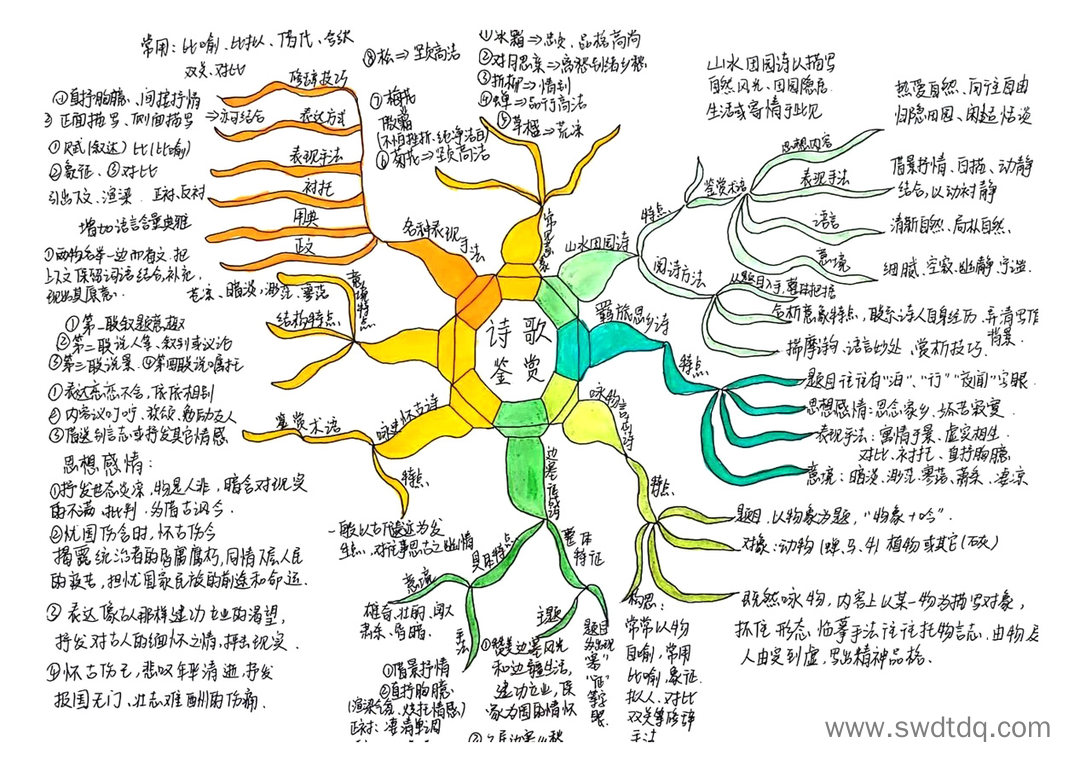 诗歌
鉴赏
常用：比喻、比拟、借代、夸张
双关、对比
修辞技巧
①直抒胸臆、间接抒情
正面描写、侧面描写 ⇒亦可结合
表达方式
表现手法
②象征、③对比
衬托
引出下文、渲染 正衬、反衬
用典
增加语言含量典雅
互文
各种表现
手法
⑧松⇒坚贞高洁
⑦梅花
⑥菊花⇒坚贞高洁
①冰霜⇒忠贞、品格高尚
②对月思亲⇒离愁别绪乡愁
③折柳⇒惜别
④蝉⇒品行高洁
⑤草木⇒荒凉
常见意象
山水田园诗
山水田园诗以描写
自然风光、田园隐居
生活或寄情于此见
热爱自然、向往自由
归隐田园、闲适恬淡
思想内容
鉴赏术语
特点
表现手法
借景抒情、白描、动静
结合，以动衬静
语言
清新自然、质朴自然.
意境
细腻、空寂、幽静、宁谧.
阅诗方法
从题目入手、整体把握
分析意象特点，联系诗人自身经历，弄清写作
背景.
揣摩诗句、语言妙处、赏析技巧.
羁旅思乡诗
特点
题目往往有“泊”、“行”“夜闻”字眼.
思想感情：思念家乡、孤苦寂寞
表现手法：寓情于景、虚实相生.
对比、衬托、直抒胸臆
意境：暗淡、渺茫、零落、萧条、凄凉
咏物言志诗
特点
题目，以物象为题，“物象＋吟”.
对象：动物（蝉、马、牛）植物或其它（石灰）
既然咏物，内容上以某一物为描写对象，
抓住形态，临摹手法往往托物言志，由物及
人由实到虚，写出精神品格.
构思：
常常以物
自喻，常用
比喻、象征、
拟人、对比
双关等修辞
手法
边塞征战诗
整体
特征
题目
主题
①赞美边塞风光
和边疆生活，
建功立业，保
家为国的情怀
具体特点
意境
雄奇、壮阔、闲人
肃杀、昏暗.
手法
①借景抒情
②直抒胸臆
（渲染气氛、烘托情感）
正衬：凄清单调
咏史怀古诗
特点
一般以古代遗迹为发
生点，对往事思古之幽情
鉴赏术语
思想感情：
①抒发世态炎凉，物是人非，暗含对现实
的不满、批判，为借古讽今.
②忧国伤时，怀古伤今
揭露统治者的昏庸腐朽，同情下层人民
的疾苦，担忧国家民族的前途和命运.
③表达像古人那样建功立业的渴望，
抒发对古人的缅怀之情，抨击现实.
④怀古伤己，悲叹年华消逝，抒发
报国无门、壮志难酬的伤痛.
意境特点
苍凉、暗淡、渺茫、零落
结构特点
①第一联叙题意极
②第二联说人事、叙别或议论
③第三联说景. ④第四联说嘱托
①表达恋恋不舍，依依相别
②内容议叮咛、放颂，勉励友人
③借送别言志或抒发其它情感
www.swdtdq.com